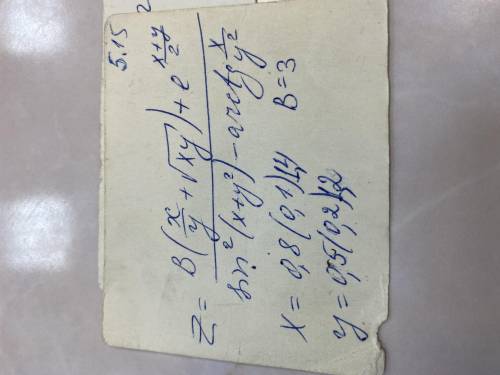 5.15
Z = B(x/y + √xy) + e^((x+y)/2) / sin²(x+y²) - arctg x/y²
x = 0,8(0,1)1,4 B = 3